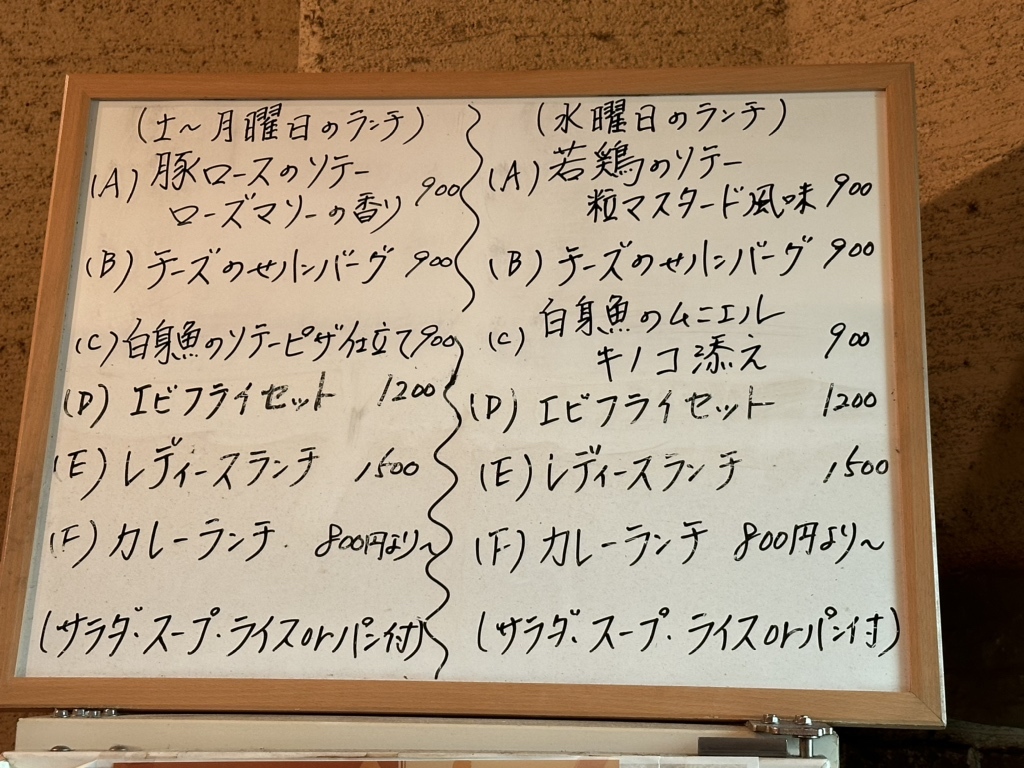 (土～月曜日のランチ)
(A) 豚ロースのソテー
ローズマリーの香り 900
(B) チーズのせハンバーグ 900
(C) 白身魚のソテーピザ仕立て 900
(D) エビフライセット 1200
(E) レディースランチ 1500
(F) カレーランチ 800円より～
(サラダ・スープ・ライスorパン付)
(水曜日のランチ)
(A) 若鶏のソテー
粒マスタード風味 900
(B) チーズのせハンバーグ 900
(C) 白身魚のムニエル
キノコ添え 900
(D) エビフライセット 1200
(E) レディースランチ 1500
(F) カレーランチ 800円より～
(サラダ・スープ・ライスorパン付)